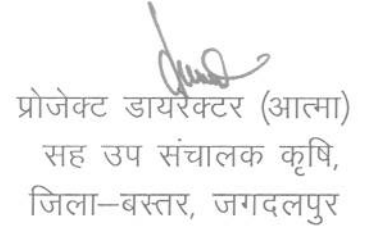 प्रोजेक्ट डायरेक्टर (आत्मा)
सह उप संचालक कृषि,
जिला–बस्तर, जगदलपुर